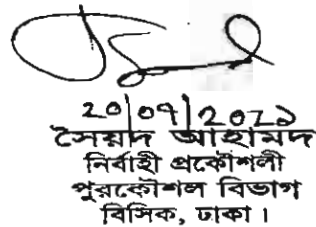 ২০|০৭|২০২১
সৈয়দ আহামদ
নির্বাহী প্রকৌশলী
পুরকৌশল বিভাগ
বিসিক, ঢাকা।